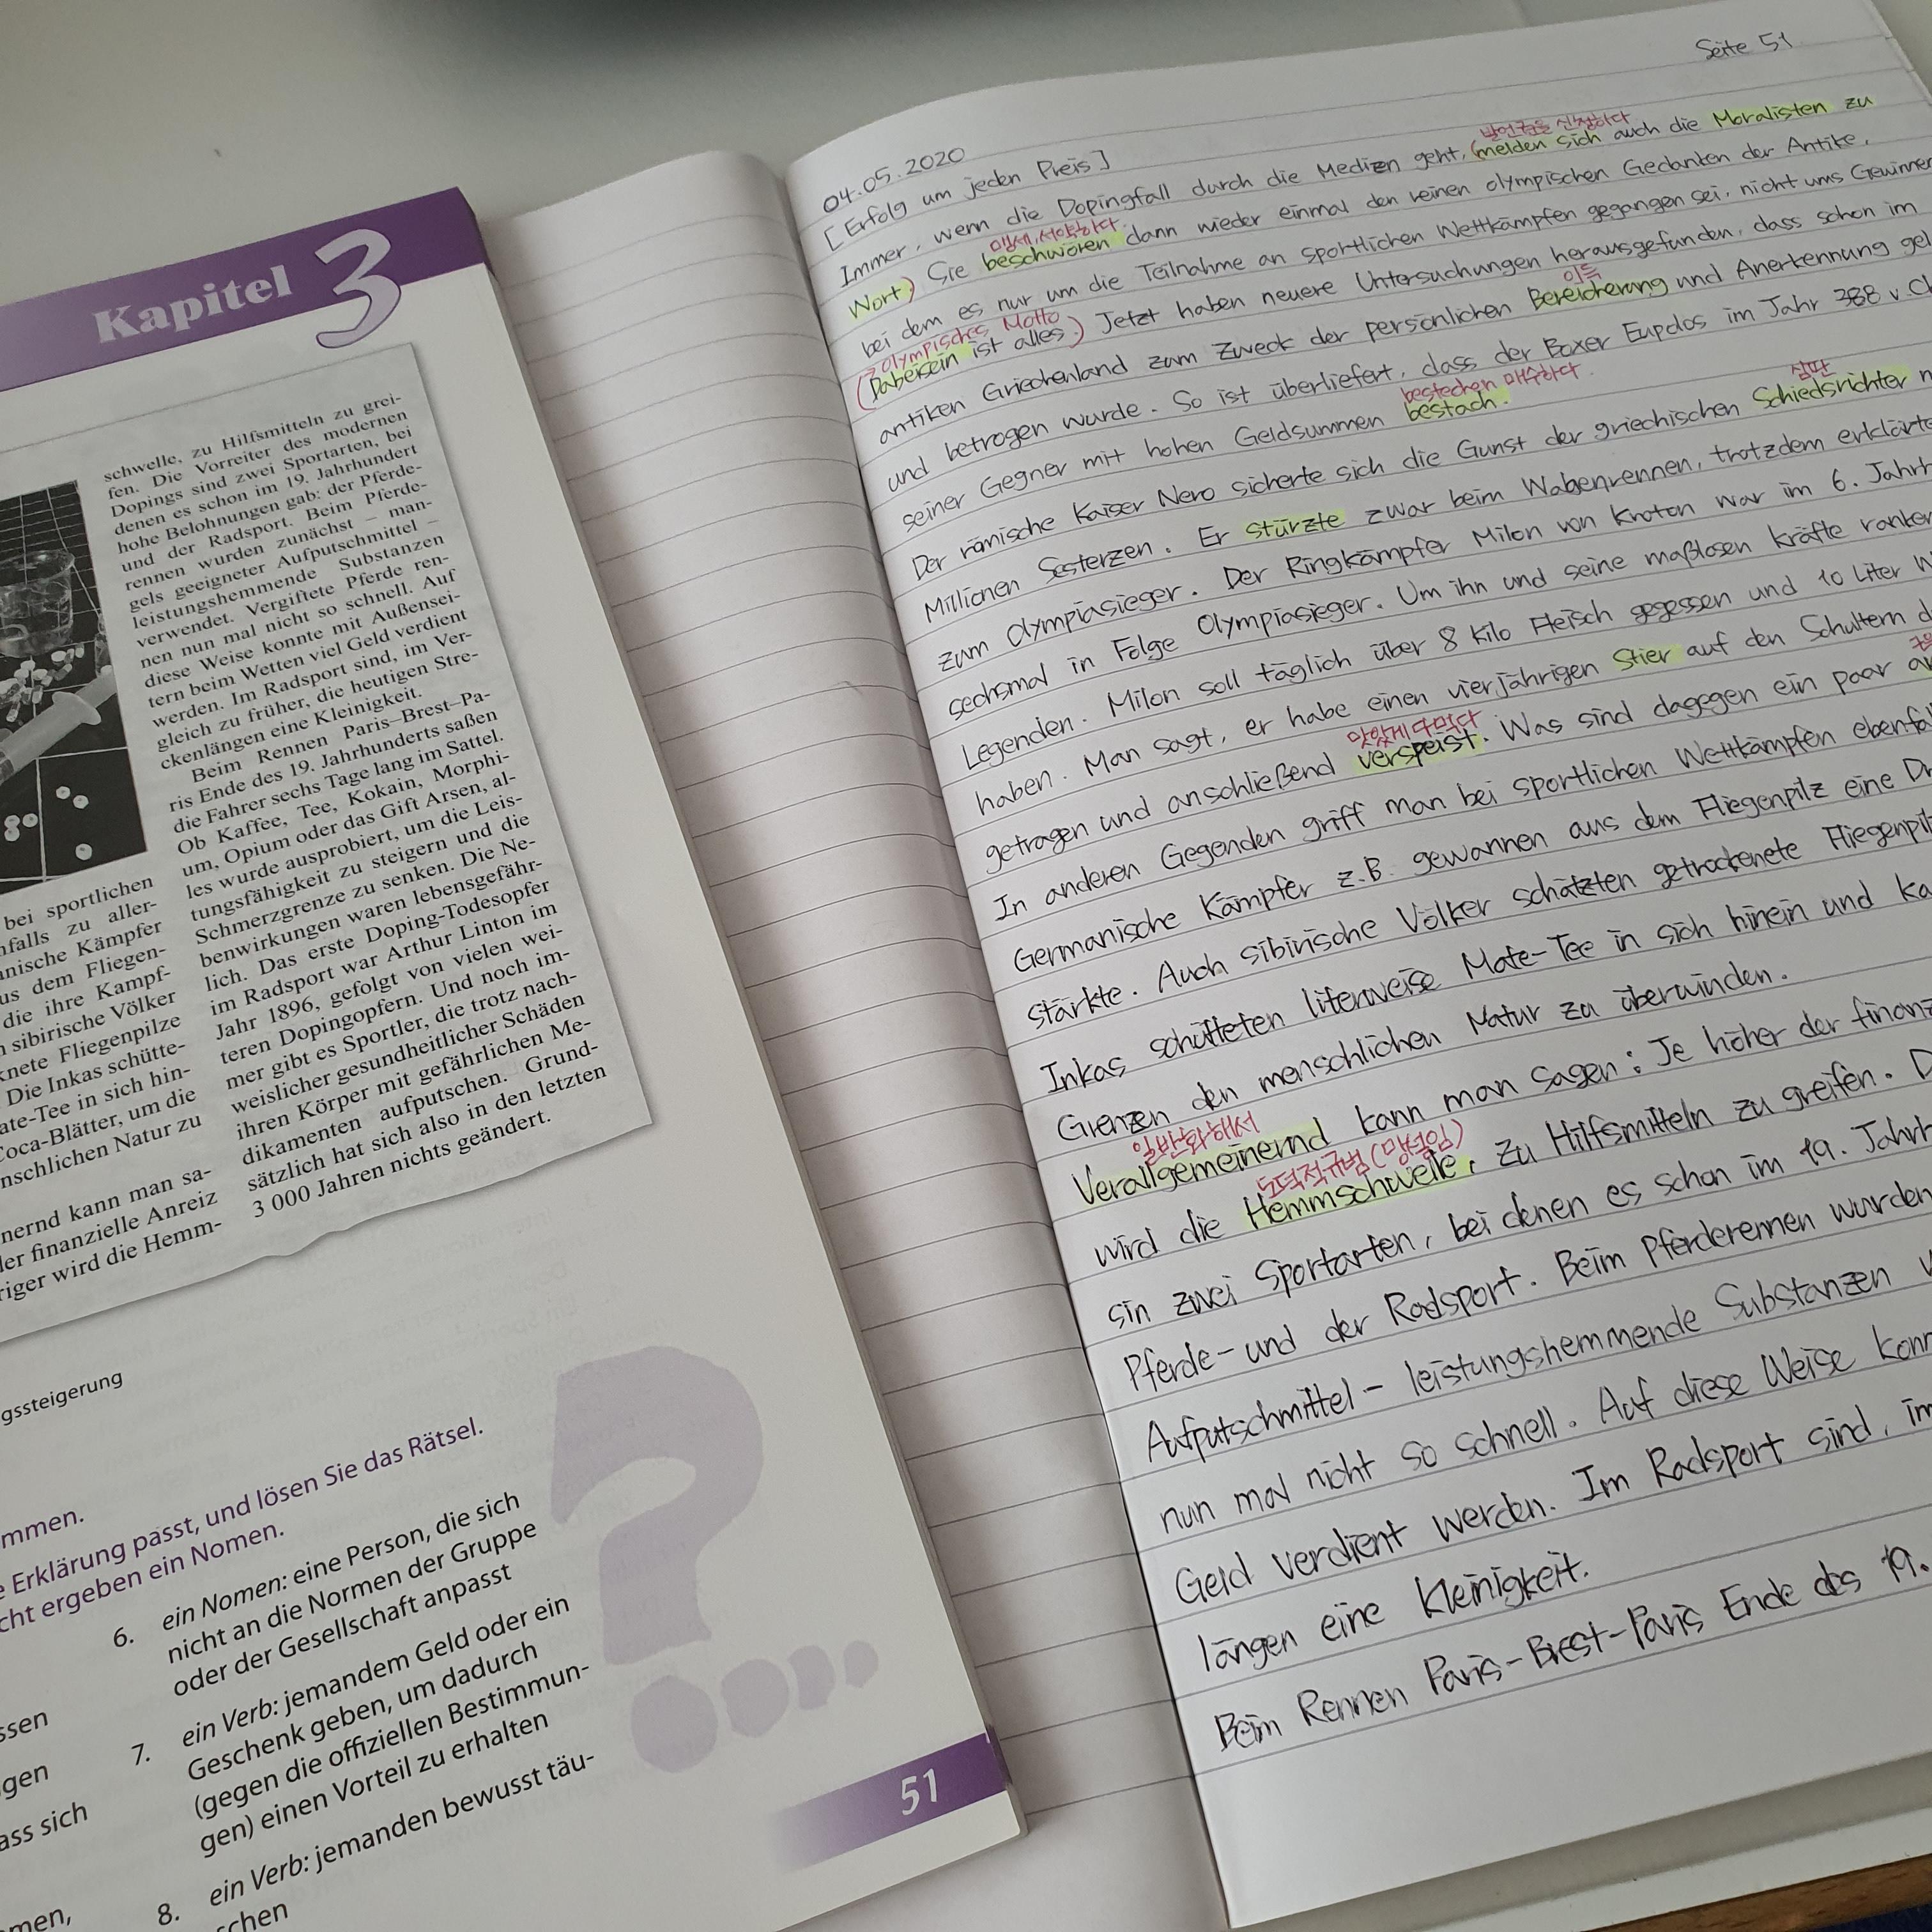 Kapitel 3
schwelle, zu Hilfsmitteln zu grei-
fen. Die Vorreiter des modernen
Dopings sind zwei Sportarten, bei
denen es schon im 19. Jahrhundert
hohe Belohnungen gab: der Pferde-
und der Radsport. Beim Pferde-
rennen wurden zunächst – man-
gels geeigneter Aufputschmittel –
leistungshemmende Substanzen
verwendet. Vergiftete Pferde ren-
nen nun mal nicht so schnell. Auf
diese Weise konnte mit Außensei-
tern beim Wetten viel Geld verdient
werden. Im Radsport sind, im Ver-
gleich zu früher, die heutigen Stre-
ckenlängen eine Kleinigkeit.
Beim Rennen Paris–Brest–Pa-
ris Ende des 19. Jahrhunderts saßen
die Fahrer sechs Tage lang im Sattel.
Ob Kaffee, Tee, Kokain, Morphi-
um, Opium oder das Gift Arsen, al-
les wurde ausprobiert, um die Leis-
tungsfähigkeit zu steigern und die
Schmerzgrenze zu senken. Die Ne-
benwirkungen waren lebensgefähr-
lich. Das erste Doping-Todesopfer
im Radsport war Arthur Linton im
Jahr 1896, gefolgt von vielen wei-
teren Dopingopfern. Und noch im-
mer gibt es Sportler, die trotz nach-
weislicher gesundheitlicher Schäden
ihren Körper mit gefährlichen Me-
dikamenten aufputschen. Grund-
sätzlich hat sich also in den letzten
3 000 Jahren nichts geändert.
bei sportlichen
nfalls zu aller-
nische Kämpfer
us dem Fliegen-
die ihre Kampf-
sibirische Völker
knete Fliegenpilze
Die Inkas schütte-
ate-Tee in sich hin-
Coca-Blätter, um die
nschlichen Natur zu
nernd kann man sa-
der finanzielle Anreiz
riger wird die Hemm-
gssteigerung
mmen.
e Erklärung passt, und lösen Sie das Rätsel.
cht ergeben ein Nomen.
6. ein Nomen: eine Person, die sich
nicht an die Normen der Gruppe
oder der Gesellschaft anpasst
7. ein Verb: jemandem Geld oder ein
Geschenk geben, um dadurch
(gegen die offiziellen Bestimmun-
gen) einen Vorteil zu erhalten
8. ein Verb: jemanden bewusst täu-
schen
ssen
gen
ass sich
men,
51
Seite 51
04.05.2020
[Erfolg um jeden Preis]
발언권을 신청하다
Immer, wenn die Dopingfall durch die Medien geht, (melden sich auch die Moralisten zu
맹세, 서약하다
Wort) Sie beschwören dann wieder einmal den reinen olympischen Gedanken der Antike,
bei dem es nur um die Teilnahme an sportlichen Wettkämpfen gegangen sei, nicht ums Gewinnen
olympisches Motto
이득
(Dabeisein ist alles) Jetzt haben neuere Untersuchungen herausgefunden, dass schon im
antiken Griechenland zum Zweck der persönlichen Bereicherung und Anerkennung gel
und betrogen wurde. So ist überliefert, dass der Boxer Eupolos im Jahr 388 v. Ch
bestechen 매수하다
seiner Gegner mit hohen Geldsummen bestach.
심판
Der römische Kaiser Nero sicherte sich die Gunst der griechischen Schiedsrichter
Millionen Sesterzen. Er stürzte zwar beim Wagenrennen, trotzdem erklärte
zum Olympiasieger. Der Ringkämpfer Milon von Kroton war im 6. Jahrh
sechsmal in Folge Olympiasieger. Um ihn und seine maßlosen kräfte ranken
Legenden. Milon soll täglich über 8 Kilo Fleisch gegessen und 10 Liter W
haben. Man sagt, er habe einen vierjährigen Stier auf den Schultern
맛있게 다 먹다
getragen und anschließend verspeist. Was sind dagegen ein paar
In anderen Gegenden griff man bei sportlichen Wettkämpfen ebenfal
Germanische Kämpfer z.B. gewannen aus dem Fliegenpilz eine Dr
stärkte. Auch sibirische Völker schätzten getrockenete Fliegenpil
Inkas schütteten literweise Mate-Tee in sich hinein und ka
Grenzen den menschlichen Natur zu überwinden.
일반화해서
Verallgemeinernd kann man sagen: Je höher der finanz
도덕적규범 (망설임)
wird die Hemmschwelle, zu Hilfsmitteln zu greifen. D
sin zwei Sportarten, bei denen es schon im 19. Jahrh
Pferde- und der Radsport. Beim Pferderennen wurden
Aufputschmittel - leistungshemmende Substanzen v
nun mal nicht so schnell. Auf diese Weise konn
Geld verdient werden. Im Radsport sind, im
längen eine Kleinigkeit.
Beim Rennen Paris-Brest-Paris Ende des 19.